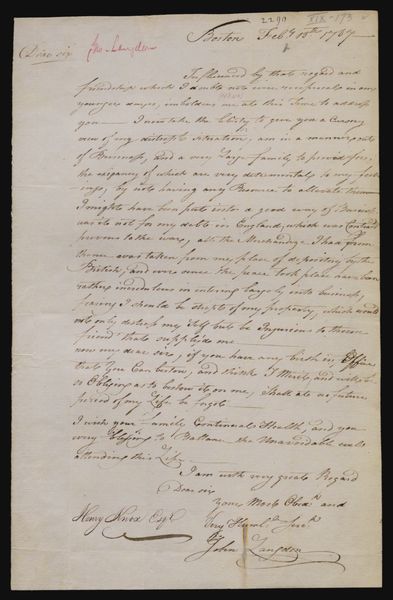 2290 XIX-173
Boston Feby 10th 1787
Dear sir Jno. Langdon
Influenced by that regard and
friendship which I doubt not were reciprocal in our
younger days, imboldens me at this time to address
you — I now take the liberty to give you a Cursory
view of my distrest situation, am in a manner out
of Business, and a very Large family to provide for,
the exigency of which are very detremental to my feel-
ings, by not having any Resource to alleviate them
I might have been put into a good way of Business
was it not for my debts in England, which was Contracted
previous to the warr, all the Merchandize I had from
thence was taken from my place of depository by the
British, and ever since the peace took place have been
rather incredulous in entering largely into business,
fearing I should be stript of my property, which would
not only distress my self but be Injurious to those
friends that supplied me —
now my dear sir, if you have any birth in Office,
that you Can bestow, and think I Merit, and will be
so Obliging as to bestow it on me, shall at no future
period of my Life be forgot —
I wish your family Continual Health, and you
every blessing to Ballance the Unavoidable evils
attending this Life —
I am with very great Regard
Dear sir
your Most Obedt and
Very Humle Servt
Henry Knox Esqr
John Langdon